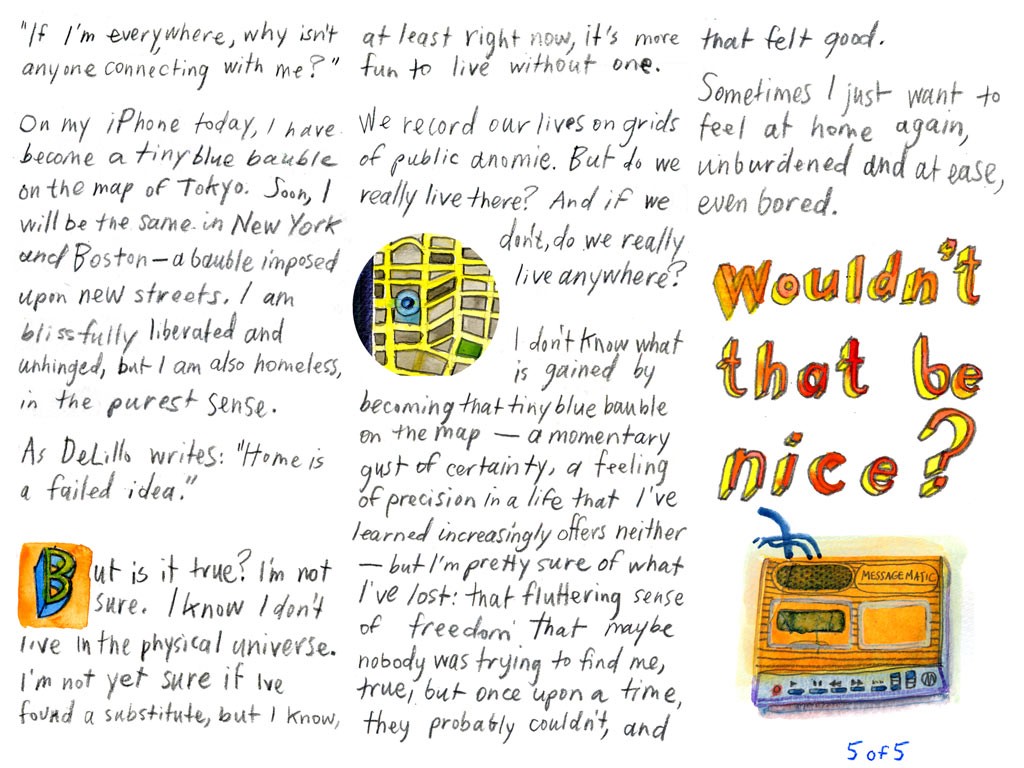 "If I'm everywhere, why isn't
anyone connecting with me?"
On my iPhone today, I have
become a tiny blue bauble
on the map of Tokyo. Soon, I
will be the same in New York
and Boston — a bauble imposed
upon new streets. I am
blissfully liberated and
unhinged, but I am also homeless,
in the purest sense.
As DeLillo writes: "Home is
a failed idea."
But is it true? I'm not
sure. I know I don't
live in the physical universe.
I'm not yet sure if I've
found a substitute, but I know,
at least right now, it's more
fun to live without one.
We record our lives on grids
of public anomie. But do we
really live there? And if we
don't, do we really
live anywhere?
I don't know what
is gained by
becoming that tiny blue bauble
on the map — a momentary
gust of certainty, a feeling
of precision in a life that I've
learned increasingly offers neither
— but I'm pretty sure of what
I've lost: that fluttering sense
of freedom that maybe
nobody was trying to find me,
true, but once upon a time,
they probably couldn't, and
that felt good.
Sometimes I just want to
feel at home again,
unburdened and at ease,
even bored.
Wouldn't
that be
nice?
MESSAGE MATIC
5 of 5